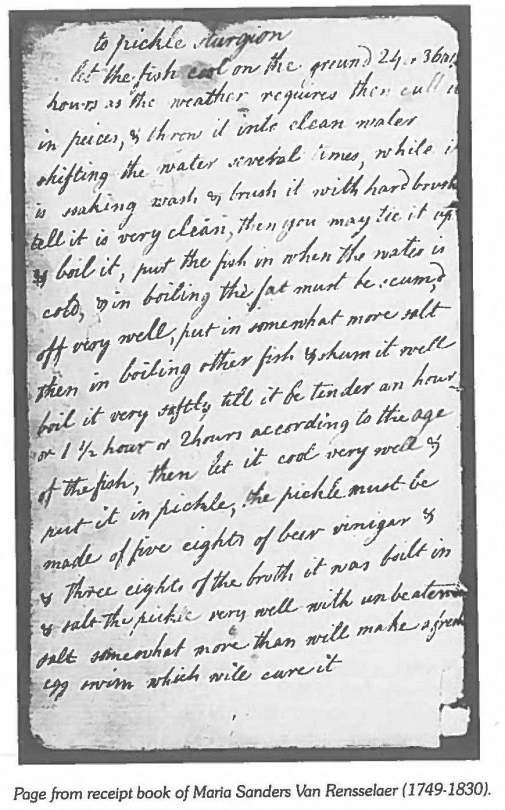 to pickle sturgion
let the fish cool on the ground 24 or 36
hours as the weather requires then cutt it
in peices, & throw it into clean water
shifting the water several times, while it
is soaking wash & brush it with hard brush
till it is very clean, then you may tie it up
& boil it, put the fish in when the water is
cold, & in boiling the fat must be scumd
off very well, put in somewhat more salt
then in boiling other fish & skum it well
boil it very softly till it be tender an hour
or 1 1/2 hour or 2 hours according to the age
of the fish, then let it cool very well &
put it in pickle, the pickle must be
made of five eights of beer vinigar &
& three eights of the broth it was boilt in
& salt the pickle very well with unbeaten
salt somewhat more than will make a fresh
egg swim which wile cure it
Page from receipt book of Maria Sanders Van Rensselaer (1749-1830).